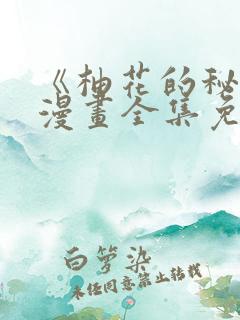 《柚花的秘
漫畫全集免
白箩染
未经同意禁止转载